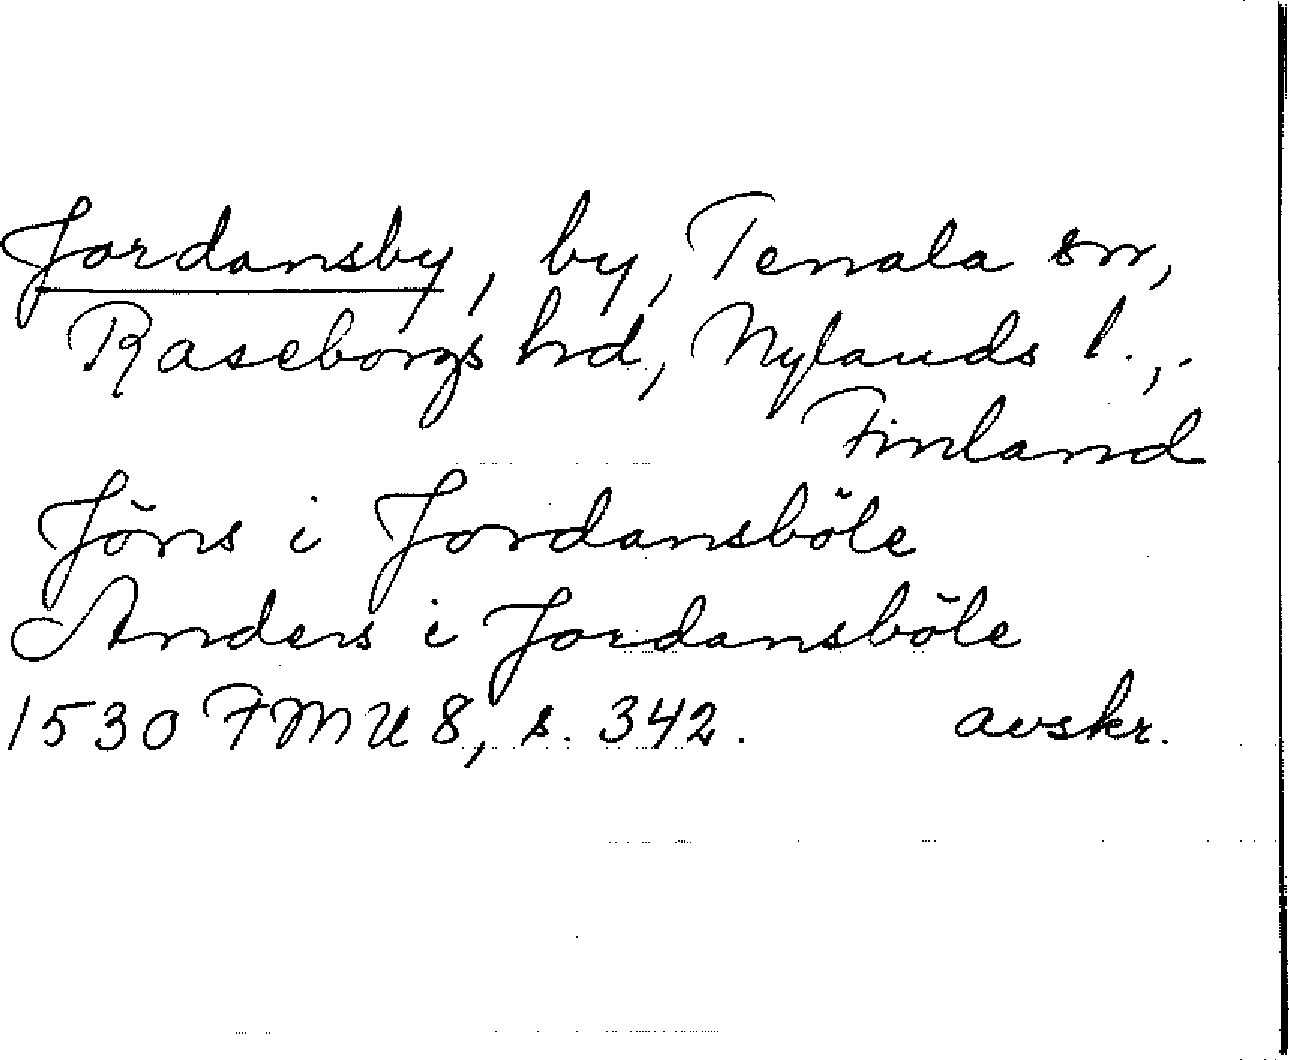 Jordansby, by, Tenala sn,
Raseborgs hd, Nylands l.,
Finland
Jöns i Jordansböle
Anders i Jordansböle
1530 FMU 8, s. 342. avskr.